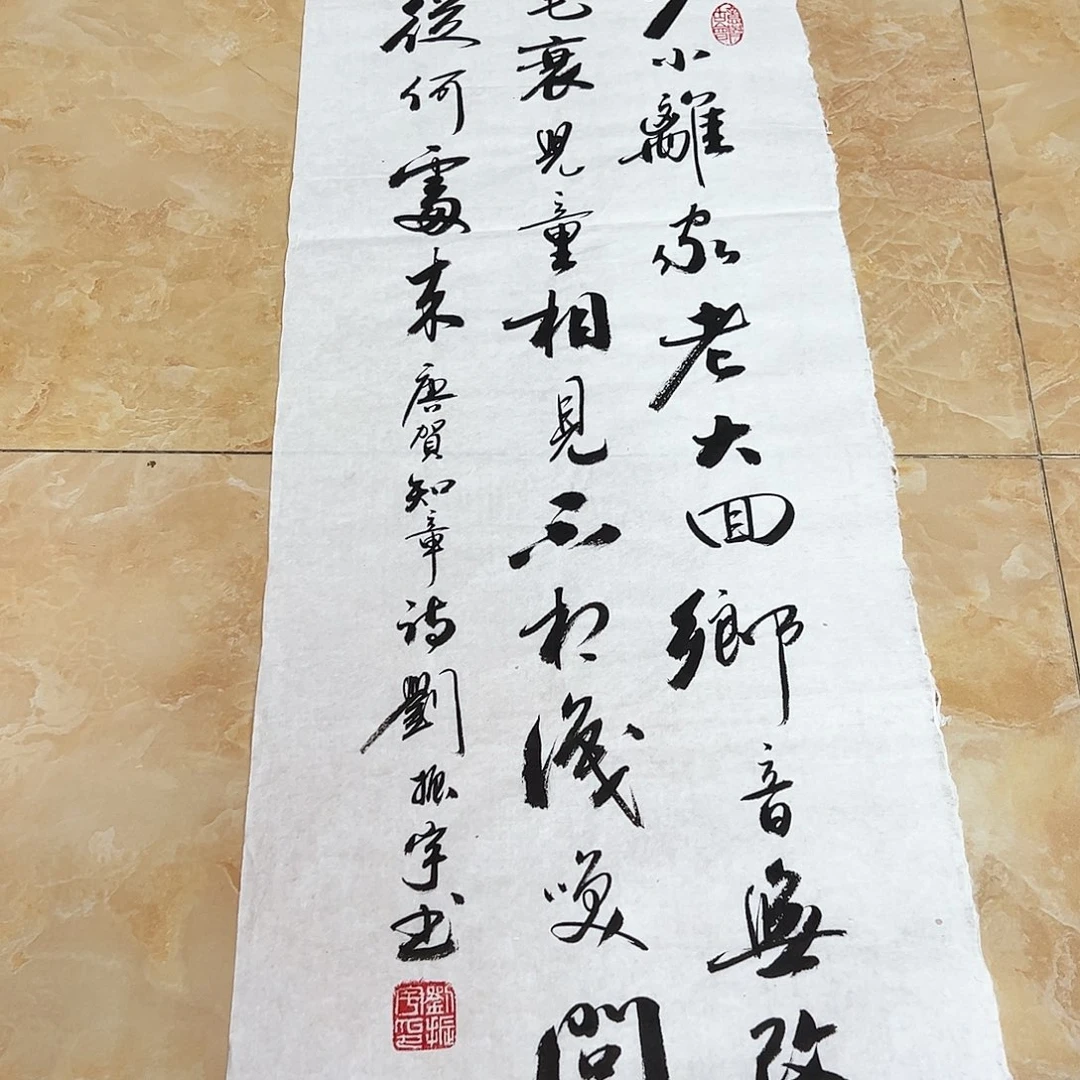 少小離家老大回鄉音無改
毛衰兒童相見不相識笑問
從何處來唐賀知章詩劉振宇书
劉振宇印